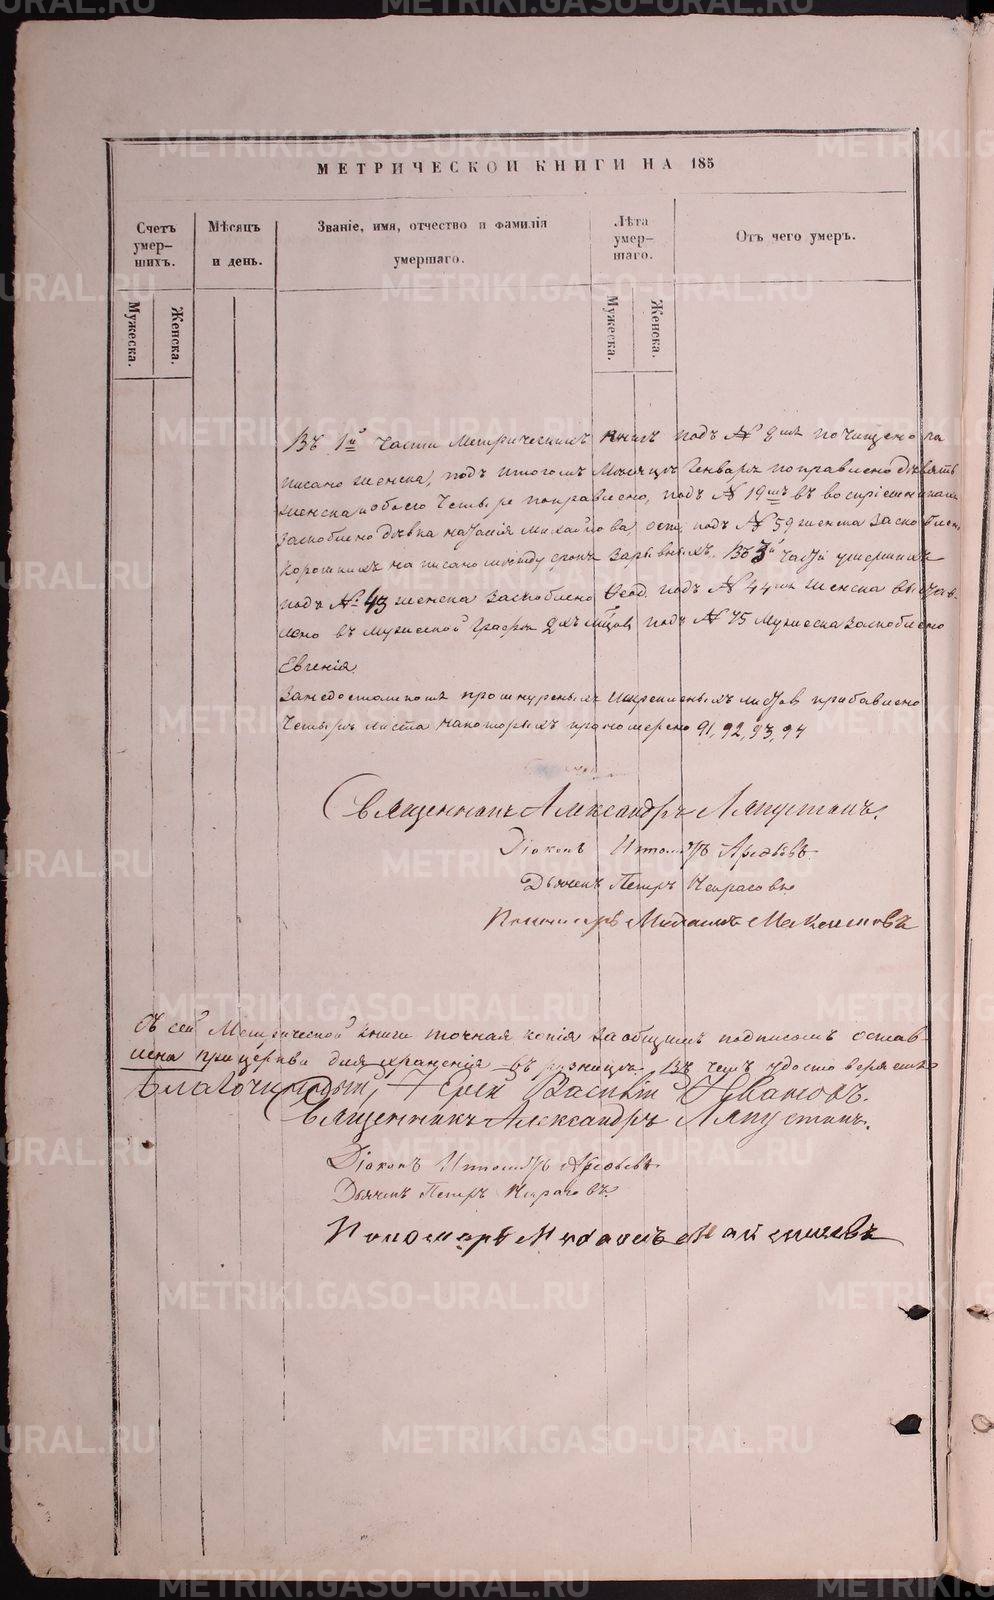 МЕТРИЧЕСКОЙ КНИГИ НА 185
Счетъ умер-шихъ.
Мѣсяцъ и день.
Званіе, имя, отчество и фамилія умершаго.
Лѣта умер-шаго.
Отъ чего умеръ.
Мужеска.
Женска.
Мужеска.
Женска.
Въ 1й части Метрическихъ книгъ подъ № 8мъ почищено на
писано женска, подъ итогомъ Мѣсяца Генваря поправлено девять
женска обоего четыре поправлено, подъ № 19мъ въ воспріемникахъ
заскоблено дѣвка Михайлова, подъ № 59 женска заскоблен.
написано между строкъ Въ 3й части умершихъ
подъ № 43 женска заскоблено Ѳеод. подъ № 44мъ женска выстав-
лено въ мужеской графѣ 2хъ подъ № 75 Мужеска заскоблено
Евгенія.
За недостаткомъ прошнуренныхъ листовъ прибавлено
Четыре листа на которыхъ прономерено 91, 92, 93, 94
Священникъ Александръ Ляпустинъ.
Діаконъ Арефьевъ.
Дьячекъ Петръ Некрасовъ.
Пономарь Михаилъ
Съ сей Метрической книги точная копія за общимъ подписомъ остав-
лена при церкви для храненія въ ризницѣ. Въ чемъ удостоверяемъ
Благочинный, Іерей Василій Ивановъ.
Священникъ Александръ Ляпустинъ.
Діаконъ Арефьевъ.
Дьячекъ Петръ Некрасовъ.
Пономарь Михаилъ
METRIKI.GASO-URAL.RU